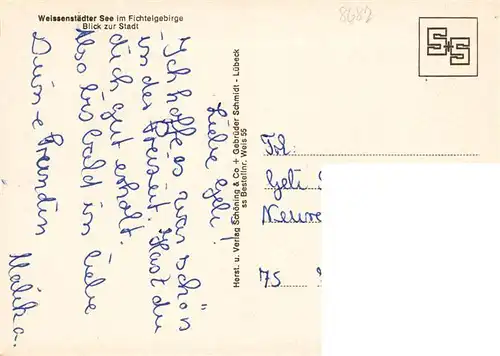 Weissenstädter See im Fichtelgebirge
Blick zur Stadt
8682
S+S
Liebe Geli!
Ich hoffe es war schön
in der Freizeit. Hast du
dich gut erholt.
Also bis bald in Liebe
Deine Freundin
Malika.
Herst. u. Verlag Schöning & Co + Gebrüder Schmidt - Lübeck
ss Bestellnr. Weis 55
Frl:
Geli
75